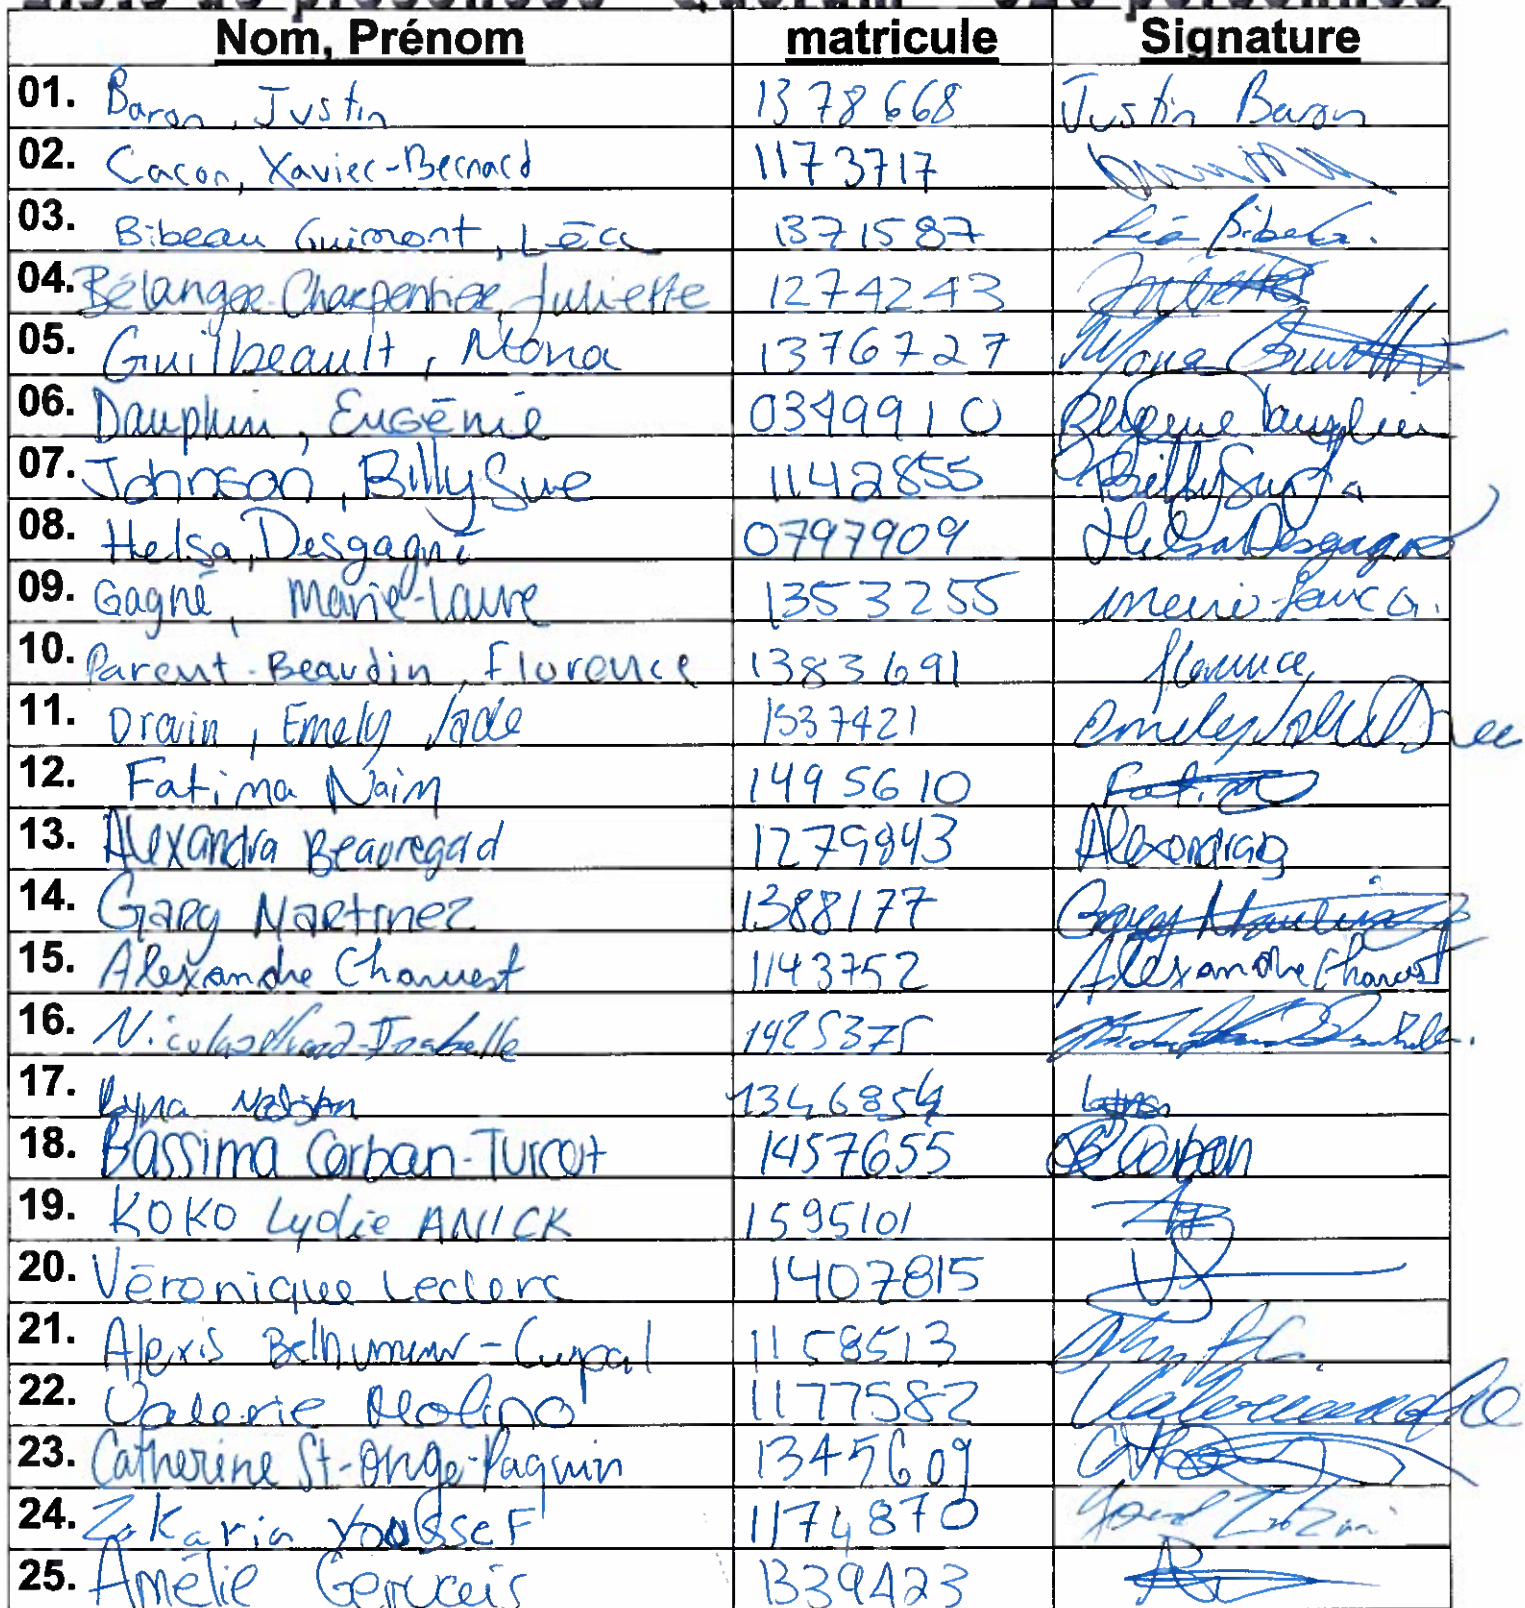 Liste de présences - Quorum
Nom, Prénom matricule Signature
01. Baron, Justin 1378668 Justin Baron
02. Caron, Xavier-Bernard 1173717
03. Bibeau Guimont, Léa 1371587 Léa Bibeau.
04. Bélanger-Charpentier, Juliette 1274243 Juliette
05. Guilbeault, Mona 1376727 Mona
06. Dauphin, Eugénie 0349910 Eugénie Dauphin
07. Johnson, BillySue 1142855 BillySue
08. Helsa, Desgagné 0797909 Helsa Desgagné
09. Gagné, Marie-Laure 1353255 Marie-Laure G.
10. Parent-Beaudin, Florence 1383691 florence
11. Drain, Emely Jade 1537421 Emely Jade
12. Fatima Naim 1495610 Fatima
13. Alexandra Beauregard 1279843
14. Gary Martinez 1388177 Gary Martinez
15. Alexandre Charvest 1143752 Alexandre Charvest
16. Nicolas 1425375
17. Lyna
18. Bassima Corban-Turcot 1457655 Corban
19. KOKO Lydie ANICK 1595101
20. Véronique Leclerc 1407815
21. Alexis Belhumeur-Cupal 1158513
22. Valerie Molino 1177582
23. Catherine St-Onge-Paquin 1345609
24. Zakaria Youssef 1174870
25. Amélie Gervais 1339423